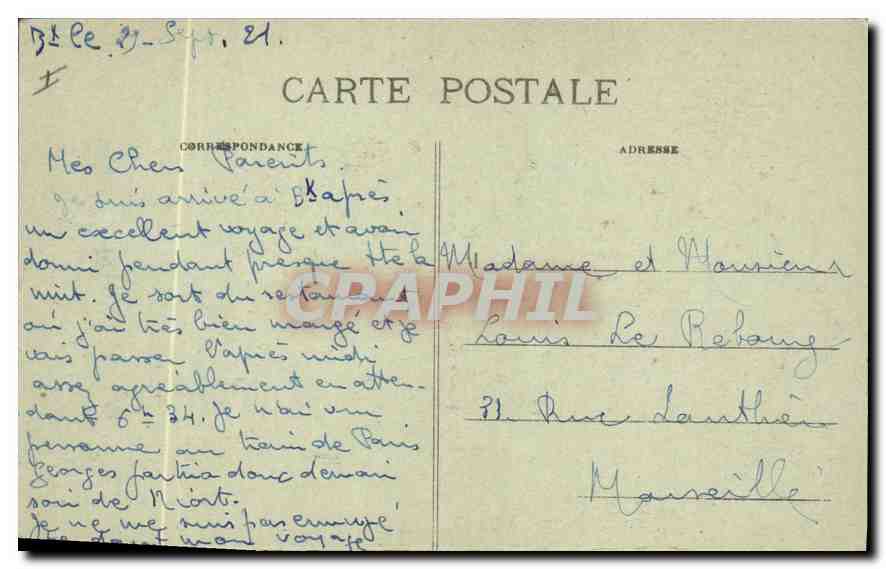 Bx le 29 Sept. 21.
CARTE POSTALE
CORRESPONDANCE
ADRESSE
Mes Chers Parents.
Je suis arrivé à Bx après
un excellent voyage et avoir
dormi pendant presque tte la
nuit. Je sort du restaurant
où j'ai très bien mangé et je
vais passer l'après midi
assez agréablement en atten-
dant 6h 34. Je n'ai vu
personne au train de Paris
Georges partira donc demain
soir de Niort.
Je ne me suis pas ennuyé
dant mon voyage
Madame et Monsieur
Louis Le
Rue
Marseille
CPAPHIL